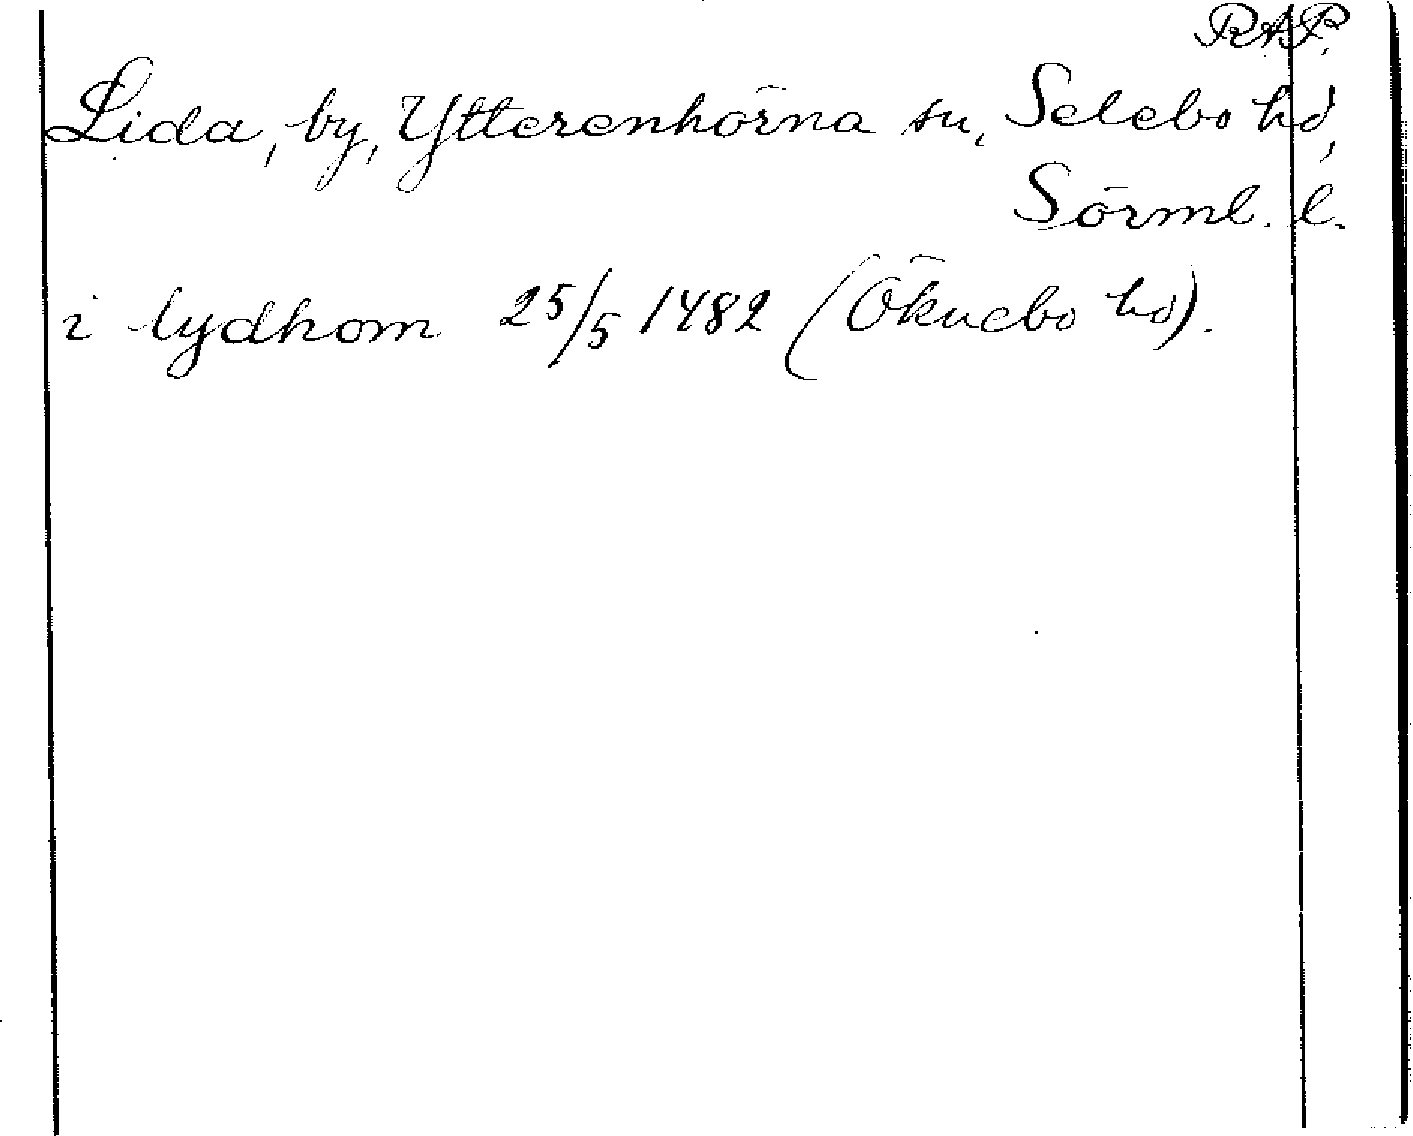 RAP.
Lida, by, Ytterenhörna sn, Selebo hd,
Sörml. l.
i lydhom 25/5 1482 (Öknebo hd).